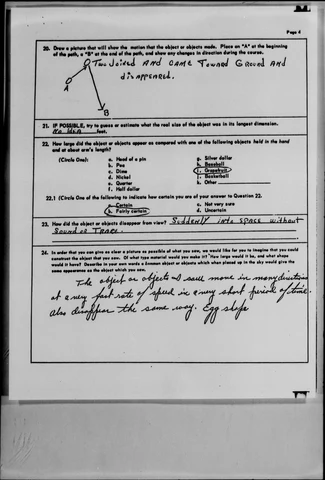 Page 4
20. Draw a picture that will show the motion that the object or objects made. Place an "A" at the beginning
of the path, a "B" at the end of the path, and show any changes in direction during the course.
Two Joined AND CAME TOWARD GROUND AND
disAPPEARED.
A
B
21. IF POSSIBLE, try to guess or estimate what the real size of the object was in its longest dimension.
No Idea feet.
22. How large did the object or objects appear as compared with one of the following objects held in the hand
and at about arm's length?
(Circle One): a. Head of a pin g. Silver dollar
b. Pea h. Baseball
c. Dime i. Grapefruit
d. Nickel j. Basketball
e. Quarter k. Other
f. Half dollar
22.1 (Circle One of the following to indicate how certain you are of your answer to Question 22.
a. Certain c. Not very sure
b. Fairly certain d. Uncertain
23. How did the object or objects disappear from view? Suddenly into space without
Sound or Trace.
24. In order that you can give as clear a picture as possible of what you saw, we would like for you to imagine that you could
construct the object that you saw. Of what type material would you make it? How large would it be, and what shape
would it have? Describe in your own words a common object or objects which when placed up in the sky would give the
same appearance as the object which you saw.
The object or objects I saw move in many directions
at a very fast rate of speed in a very short period of time.
also disappear the same way. Egg shape